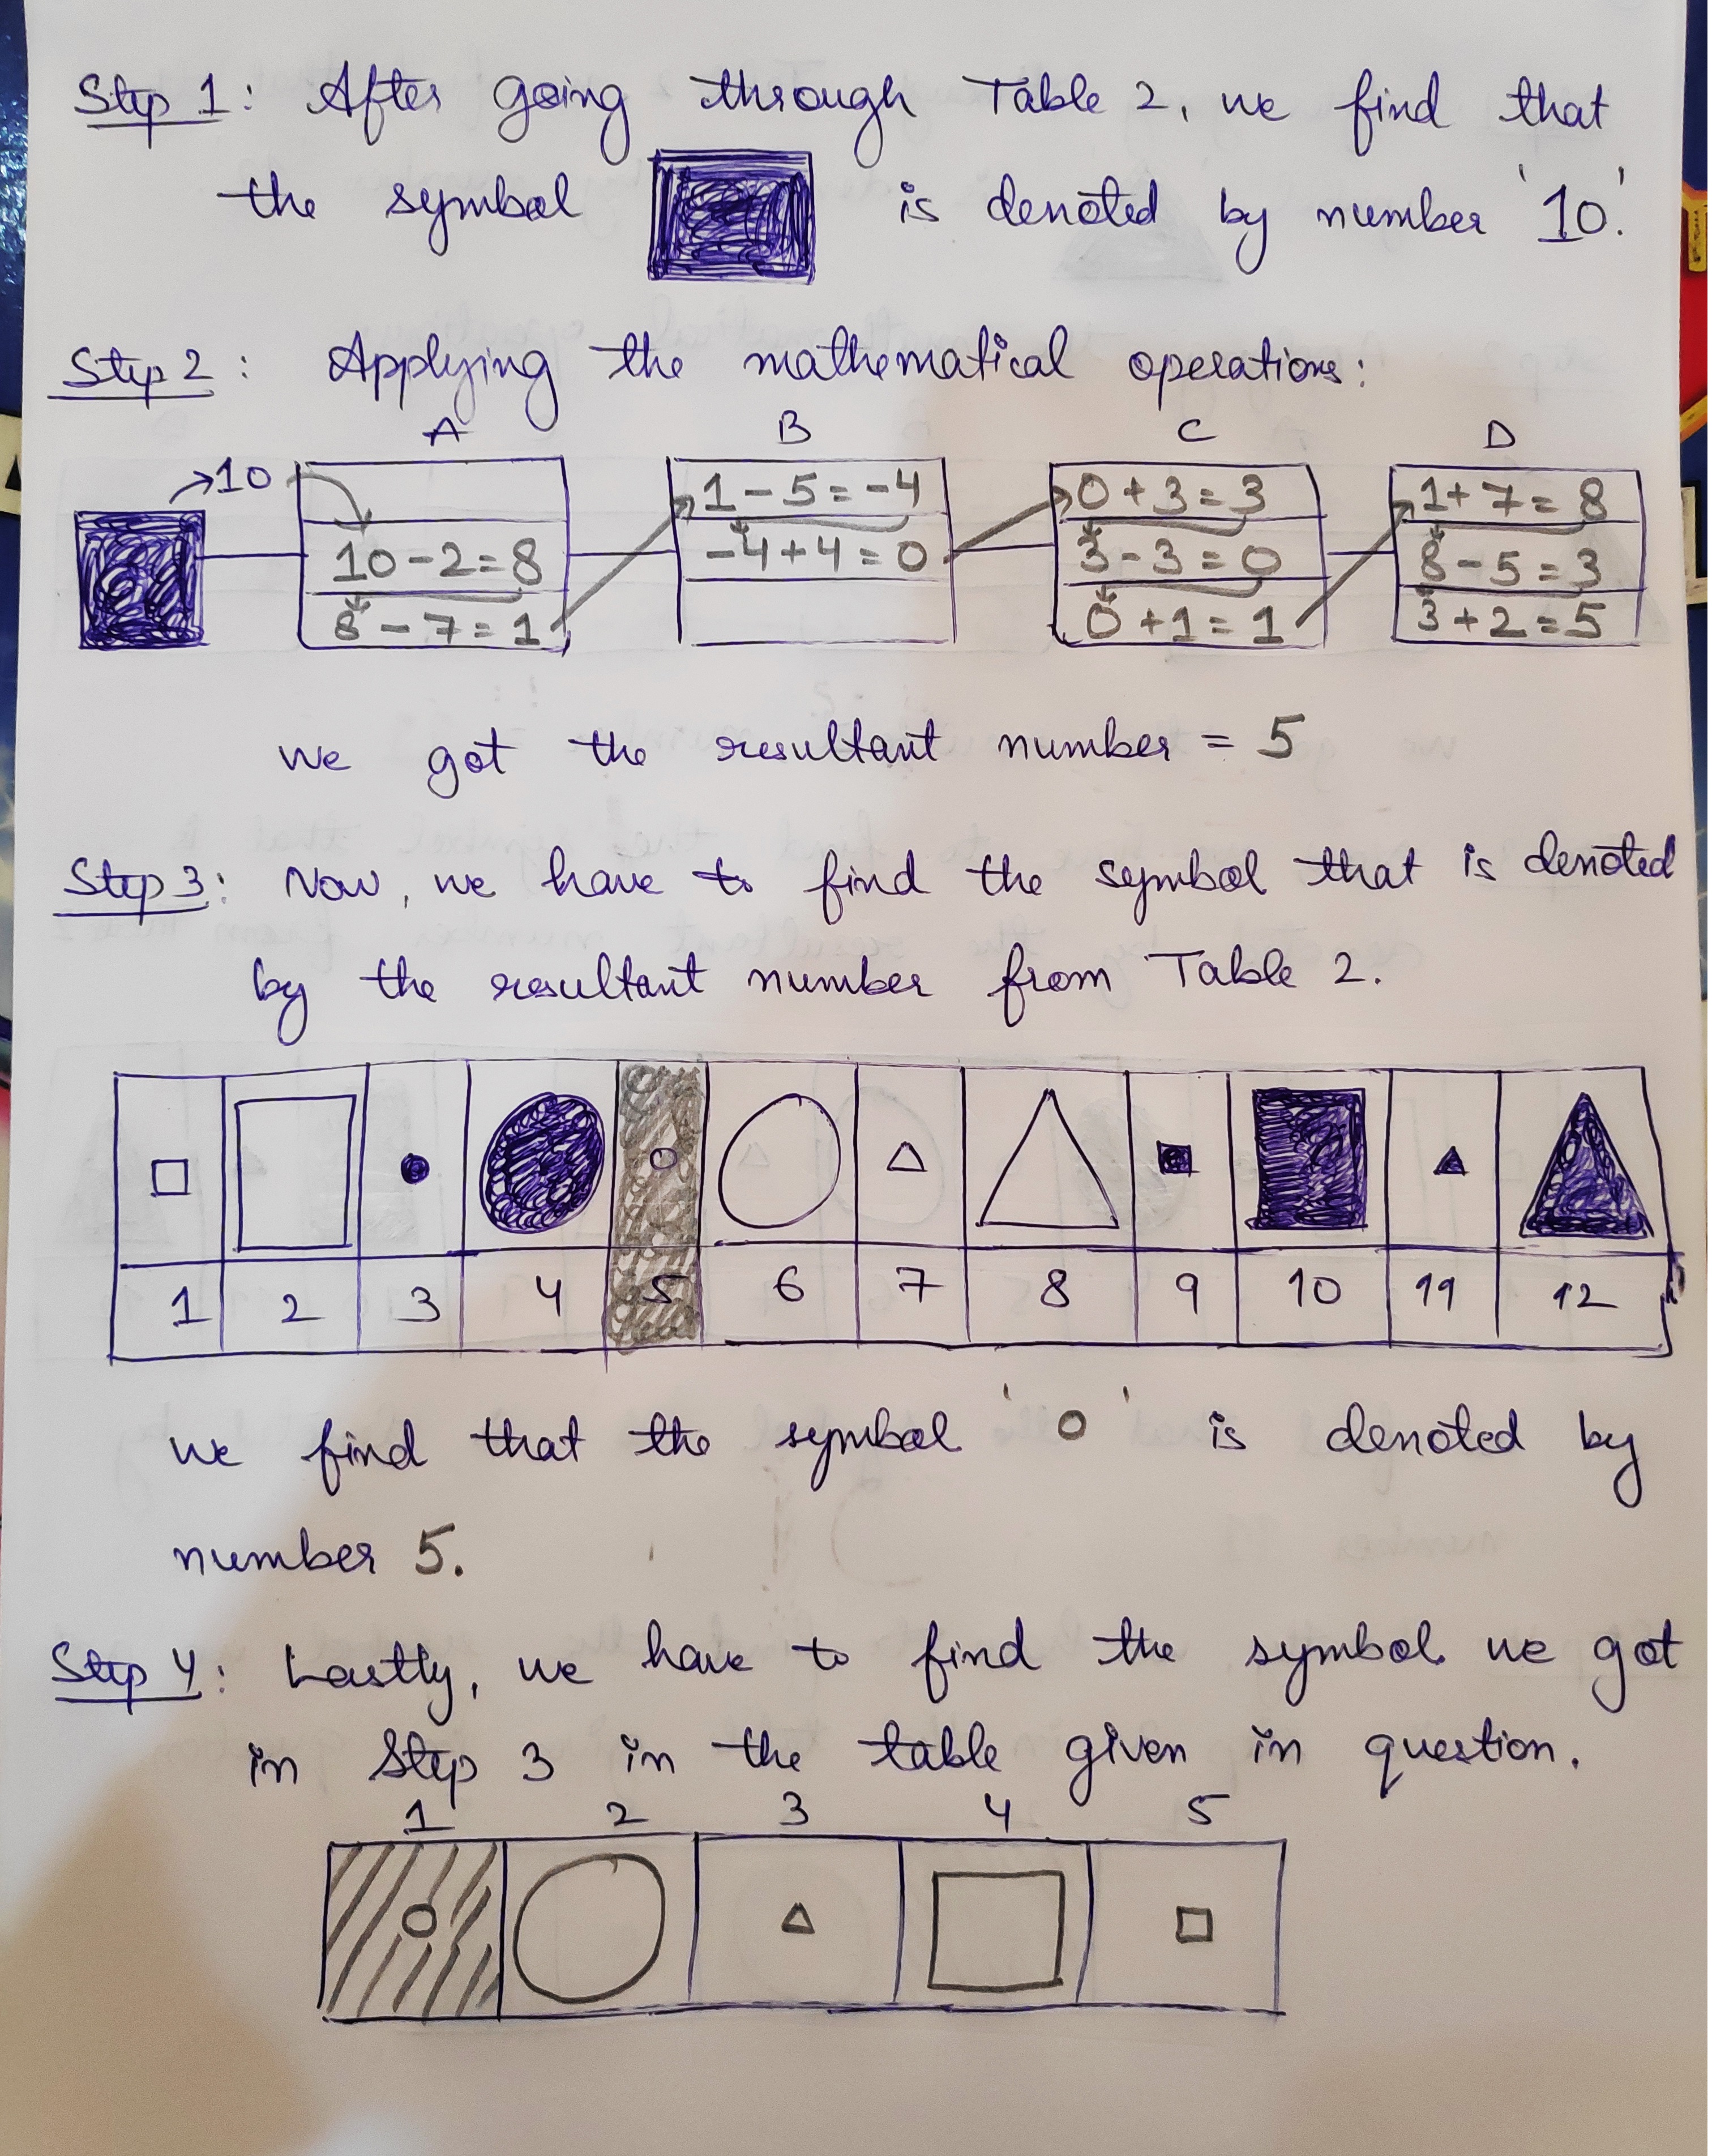 Step 1: After going through Table 2, we find that
the symbol is denoted by number '10'.
Step 2: Applying the mathematical operations:
A B C D
10
1 - 5 = -4 0 + 3 = 3 1 + 7 = 8
10 - 2 = 8 -4 + 4 = 0 3 - 3 = 0 8 - 5 = 3
8 - 7 = 1 0 + 1 = 1 3 + 2 = 5
we got the resultant number = 5
Step 3: Now, we have to find the symbol that is denoted
by the resultant number from Table 2.
1 2 3 4 5 6 7 8 9 10 11 12
we find that the symbol 'o' is denoted by
number 5.
Step 4: Lastly, we have to find the symbol we got
in Step 3 in the table given in question.
1 2 3 4 5